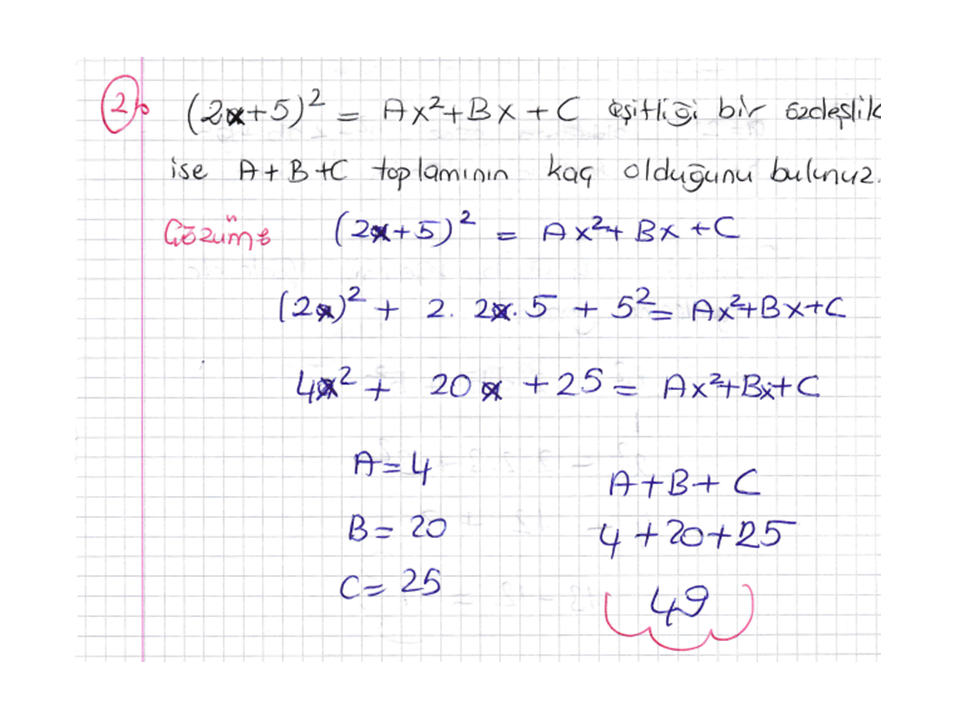 2) (2x+5)² = Ax²+Bx+C eşitliği bir özdeşlik
ise A+B+C toplamının kaç olduğunu bulunuz.
Çözüm: (2x+5)² = Ax²+Bx+C
(2x)² + 2. 2x.5 + 5² = Ax²+Bx+C
4x² + 20x + 25 = Ax²+Bx+C
A=4
B=20
C=25
A+B+C
4+20+25
49